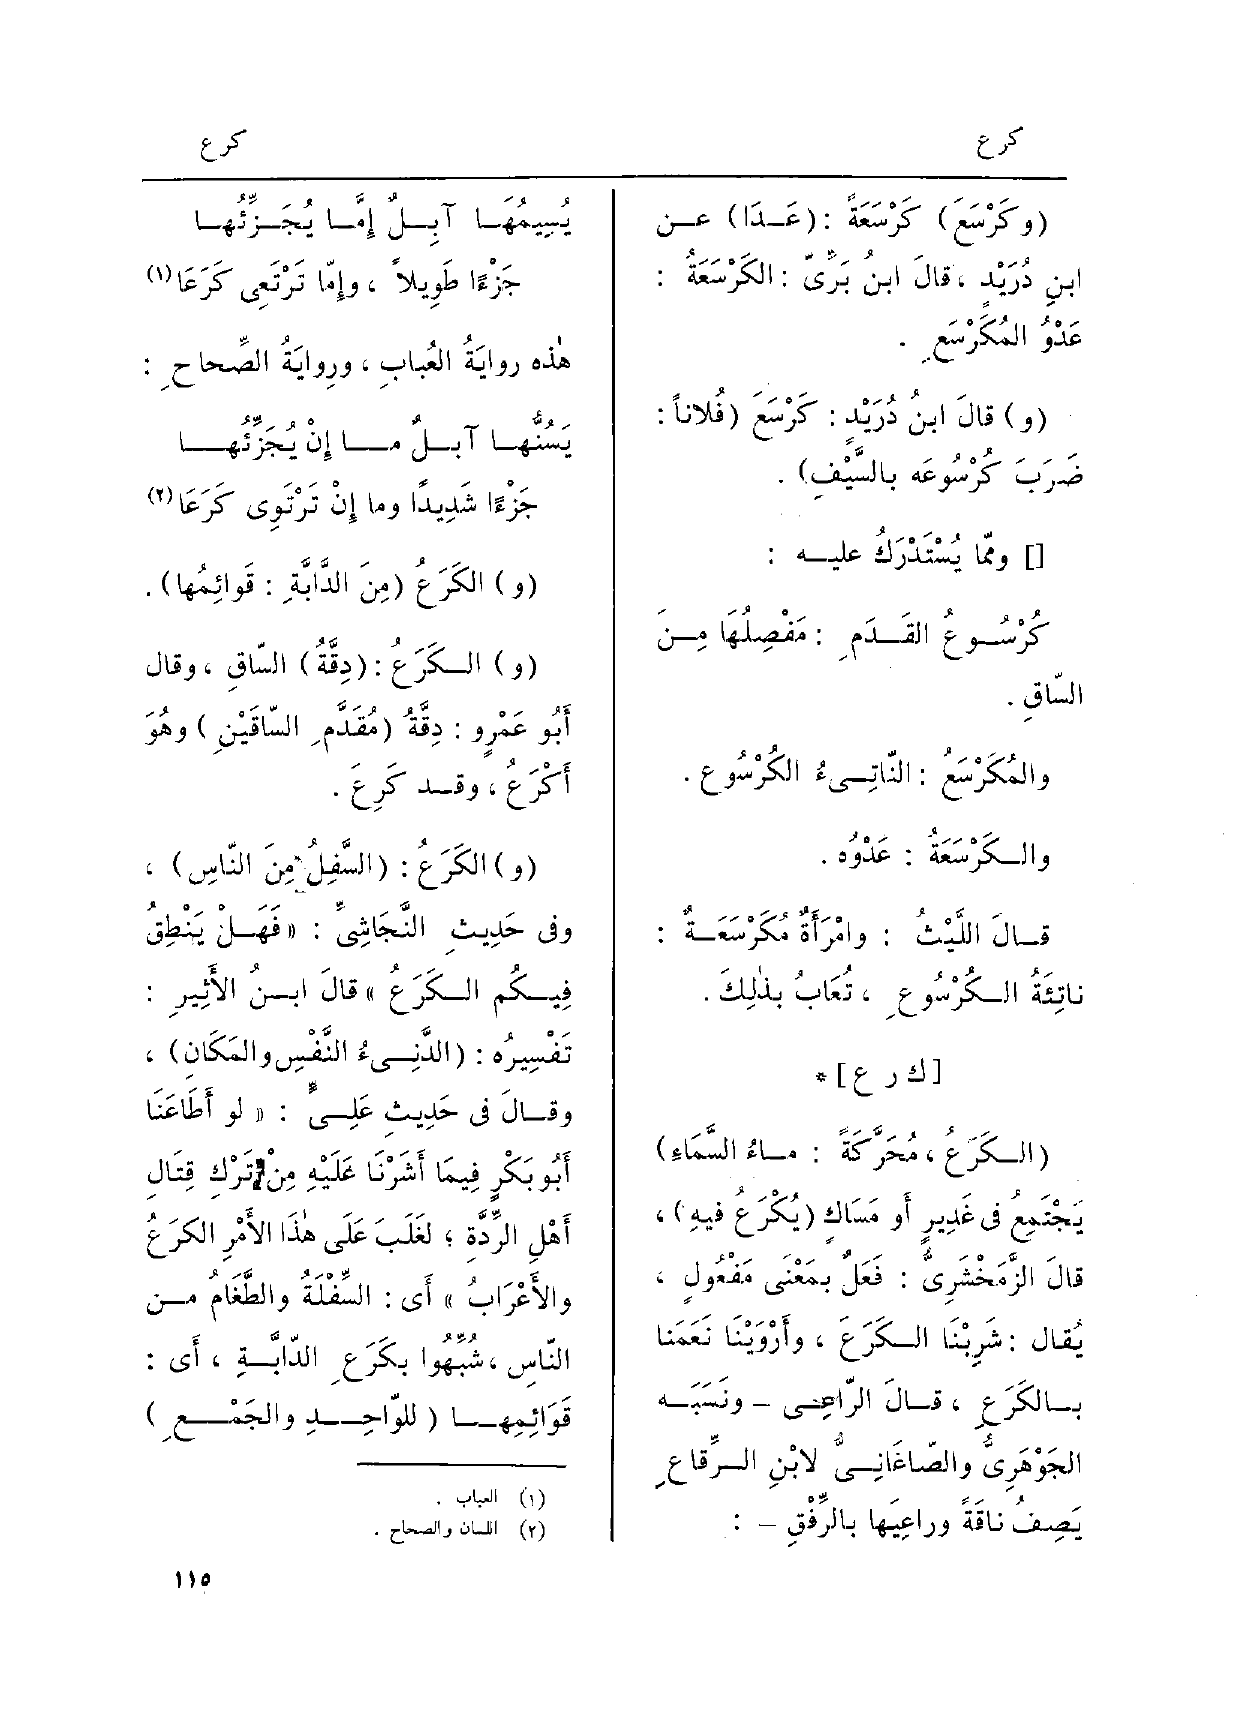 كرع
كرع
(وكَرْسَعَ) كَرْسَعَةً : (عَـدَا) عـن
ابنِ دُرَيْدٍ ، قالَ ابنُ بَرِّىّ : الكَرْسَعَةُ :
عَدْوُ المُكَرْسَعِ .
(و) قالَ ابنُ دُرَيْدٍ : كَرْسَعَ (فُلاناً :
ضَرَبَ كُرْسُوعَه بالسَّيْفِ) .
[] وممّا يُسْتَدْرَكُ عليـه :
كُرْسُـوعُ القَـدَمِ : مَفْصِلُهَا مِـنَ
السّاقِ .
والمُكَرْسَعُ : النّاتِـىءُ الكُرْسُوعِ .
والـكَرْسَعَةُ : عَدْوُه .
قـالَ اللَّيْثُ : وامْرَأَةٌ مُكَرْسَعَـةٌ :
ناتِئَةُ الـكُرْسُوعِ ، تُعَابُ بذٰلِكَ .
[ك ر ع] *
(الـكَرَعُ ، مُحَرَّكَةً : مـاءُ السَّمَاءِ)
يَجْتَمِعُ فى غَدِيرٍ أو مَسَاكٍ (يُكْرَعُ فيهِ) ،
قالَ الزَّمَخْشَرِىُّ : فَعَلٌ بمَعْنَى مَفْعُولٍ ،
يُقال : شَرِبْنَا الـكَرَعَ ، وأَرْوَيْنَا نَعَمَنا
بـالكَرَعِ ، قـالَ الرّاعِـى - ونَسَبَـه
الجَوْهَرِىُّ والصّاغَانِـىُّ لابْنِ الـرِّقاعِ
يَصِفُ ناقَةً وراعِيَها بالرِّفْقِ - :
يُسِيمُهَـا آبِـلٌ إِمَّـا يُجَـزِّئُهـا
جَزْءًا طَوِيلاً ، وإِمّا تَرْتَعِى كَرَعَا(١)
هٰذه روايَةُ العُبابِ ، ورِوايَةُ الصِّحاحِ :
يَسُنُّهـا آبـلٌ مـا إِنْ يُجَزِّئُهـا
جَزْءًا شَدِيدًا وما إِنْ تَرْتَوِى كَرَعَا(٢)
(و) الكَرَعُ (مِنَ الدَّابَّةِ : قَوائِمُها) .
(و) الـكَرَعُ : (دِقَّةُ) السّاقِ ، وقال
أَبُو عَمْرٍو : دِقَّةُ (مُقَدَّمِ السّاقَيْنِ) وهُوَ
أَكْرَعُ ، وقـد كَرِعَ .
(و) الكَرَعُ : (السَّفِلُ مِنَ النّاسِ) ،
وفى حَدِيثِ النَّجَاشِىِّ : « فَهَـلْ يَنْطِقُ
فِيـكُم الـكَرَعُ » قالَ ابـنُ الأَثِيرِ :
تَفْسِيرُه : (الدَّنِـىءُ النَّفْسِ والمَكَانِ) ،
وقـالَ فى حَدِيثِ عَلِـىٍّ : « لو أَطَاعَنَا
أَبُو بَكْرٍ فِيمَا أَشَرْنَا عَلَيْهِ مِنْ تَرْكِ قِتَالِ
أَهْلِ الرِّدَّةِ ، لغَلَبَ عَلَى هٰذا الأَمْرِ الكَرَعُ
والأَعْرَابُ » أى : السِّفْلَةُ والطَّغَامُ مـن
النّاسِ ، شُبِّهُوا بكَرَعِ الدّابَّـةِ ، أى :
قَوَائِمِهـا (للواحِـدِ والجَمْـعِ)
(١) العباب .
(٢) اللسان والصحاح .
١١٥